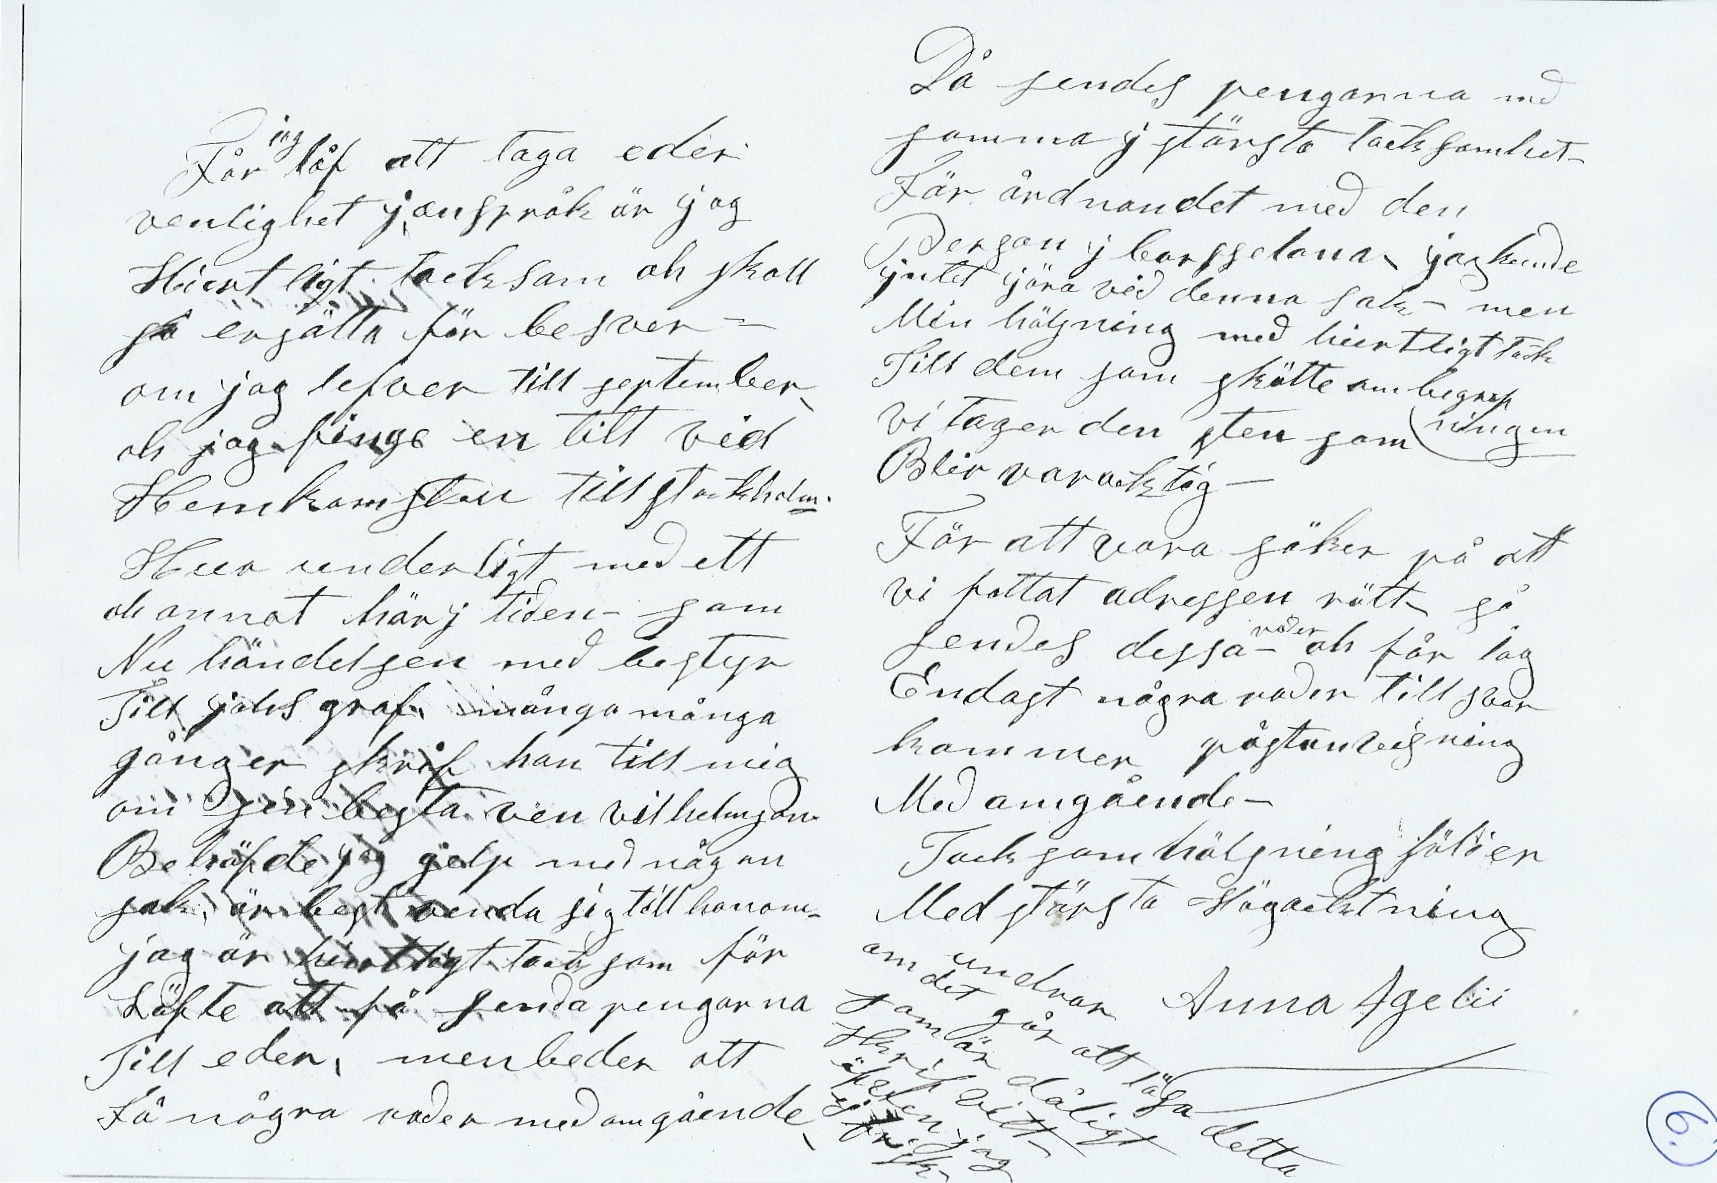 Får jag låf att taga eder
venlighet j anspråk är jag
Hiertligt tacksam oh skall
så ersätta för besver =
om jag lefver till september,
oh jag finge en tilt vid
Hemkomsten till stockholm.
Hur underligt med ett
oh annat här j tiden – som
Nu händelsen med bestyr
Till johs graf. många många
gånger skrif han till mig
om Din besta ven vilhelmson
Behöfde jag gelp med någon
sak, är best venda sig till honom –
jag är hiertligt tacksam för
Löfte att få senda pengarna
Till eder, men beder att
Få några rader med omgående,
Då sendes pengarna med
samma j största tacksamhet –
För årdnandet med den
Person j barsselona, jag kunde
jntet jöra vid denna sak – men
Min hälsning med hiertligt tack
Till dem som skötte om begrap
ningen
vi tager den sten som
Blir varacktig –
För att vara säker på att
vi fattat adressen rätt, så
sendes dessa – rader oh får iag
Endast några rader till svar
kommer påstanveisning
Med omgående –
Tacksam hälsning följer
Med största Högacktning
Anna Agelii
undrar
om det går att läsa detta
som är dåligt
Skrif vitt –
äfven jag
ej frisk –
6.